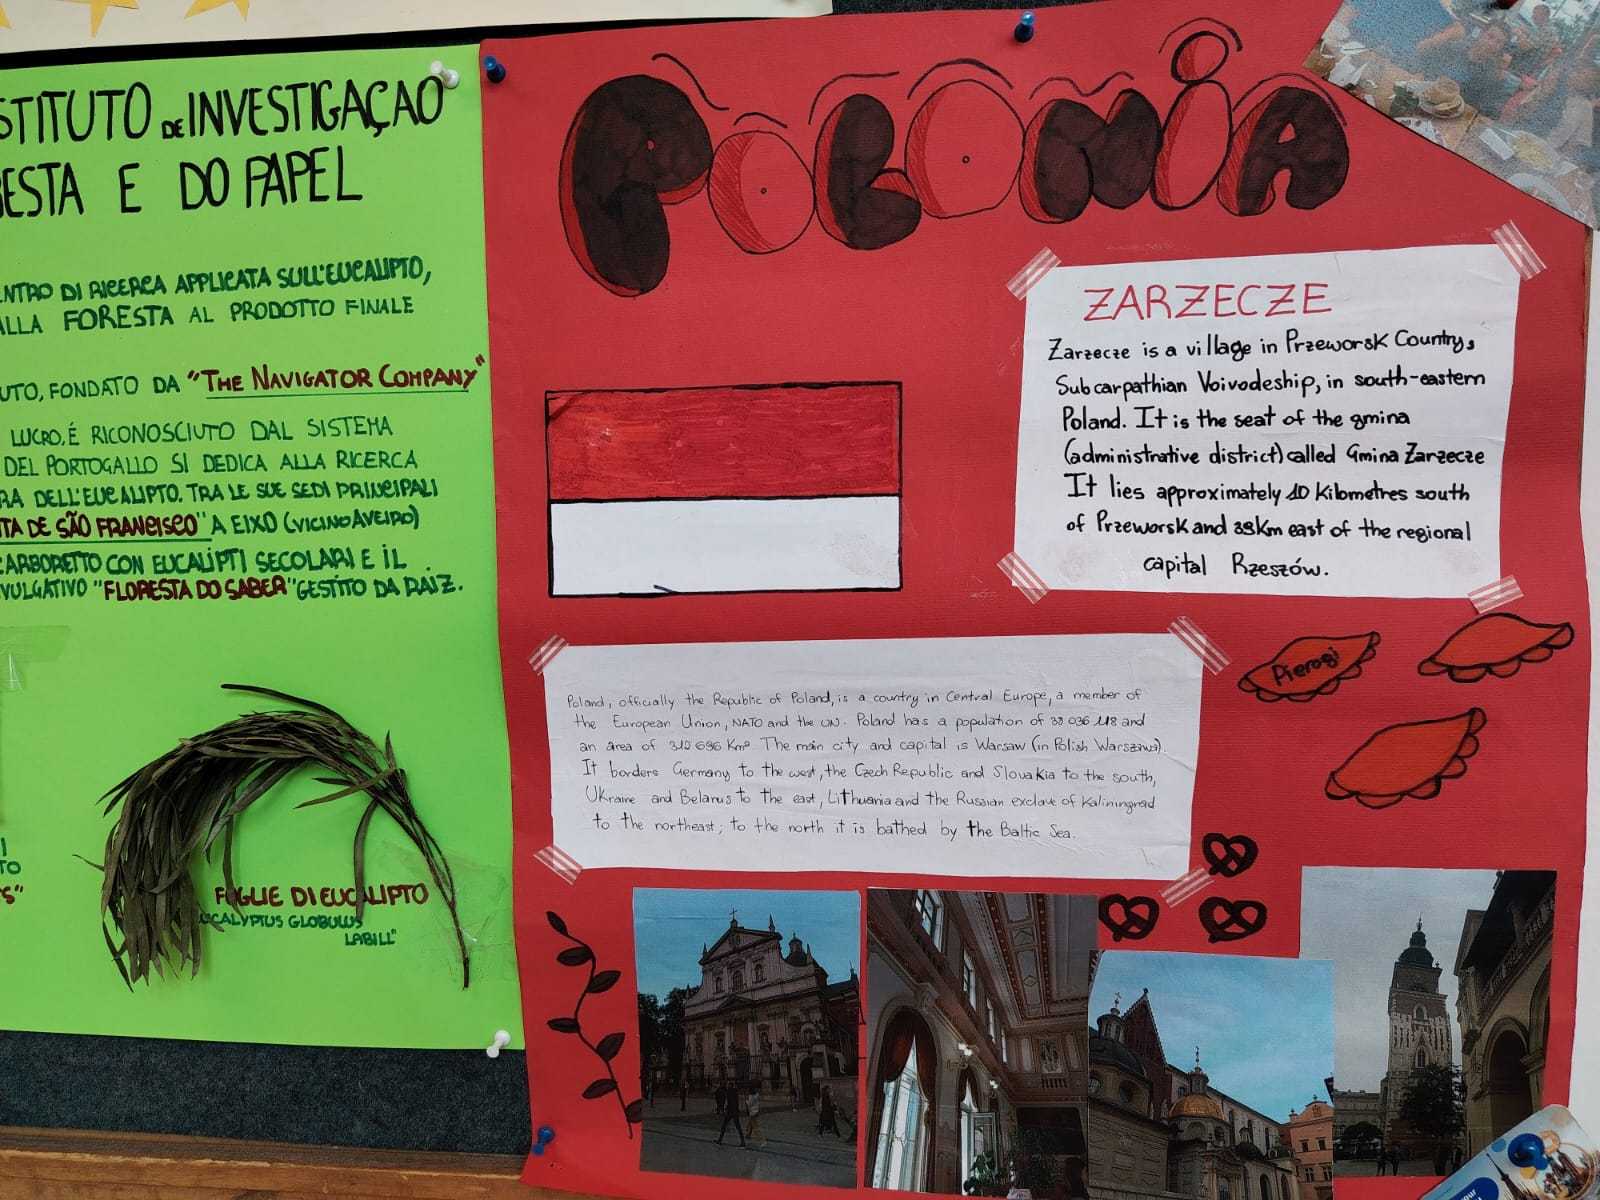 INVESTIGAÇAO
STITUTO DE
E DO PAPEL
DI RICERCA APPLICATA SULL'EUCALIPTO,
ALLA FORESTA AL PRODOTTO FINALE
FONDATO DA "THE NAVIGATOR COMPANY"
LUCRO, É RICONOSCIUTO DAL SISTEMA
DEL PORTOGALLO SI DEDICA ALLA RICERCA
DELL'EUCALIPTO. TRA LE SUE SEDI PRINCIPALI
DE SÃO FRANCISCO" A EIXO (VICINO AVEIRO)
ARBORETTO CON EUCALIPTI SECOLARI E IL
"FLORESTA DO SABER" GESTITO DA RAIZ.
FOGLIE DI EUCALIPTO
EUCALYPTUS GLOBULUS
LABILL"
POLONIA
ZARZECZE
Zarzecze is a village in Przeworsk Country,
Subcarpathian Voivodeship, in south-eastern
Poland. It is the seat of the gmina
(administrative district) called Gmina Zarzecze
It lies approximately 10 Kilometres south
of Przeworsk and 38Km east of the regional
capital Rzeszów.
Poland, officially the Republic of Poland, is a country in Central Europe, a member of
the European Union, NATO and the UN. Poland has a population of 38 036 118 and
an area of 312 696 Km². The main city and capital is Warsaw (in Polish Warszawa).
It borders Germany to the west, the Czech Republic and Slovakia to the south,
Ukraine and Belarus to the east, Lithuania and the Russian exclave of Kaliningrad
to the northeast; to the north it is bathed by the Baltic Sea.
Pierogi